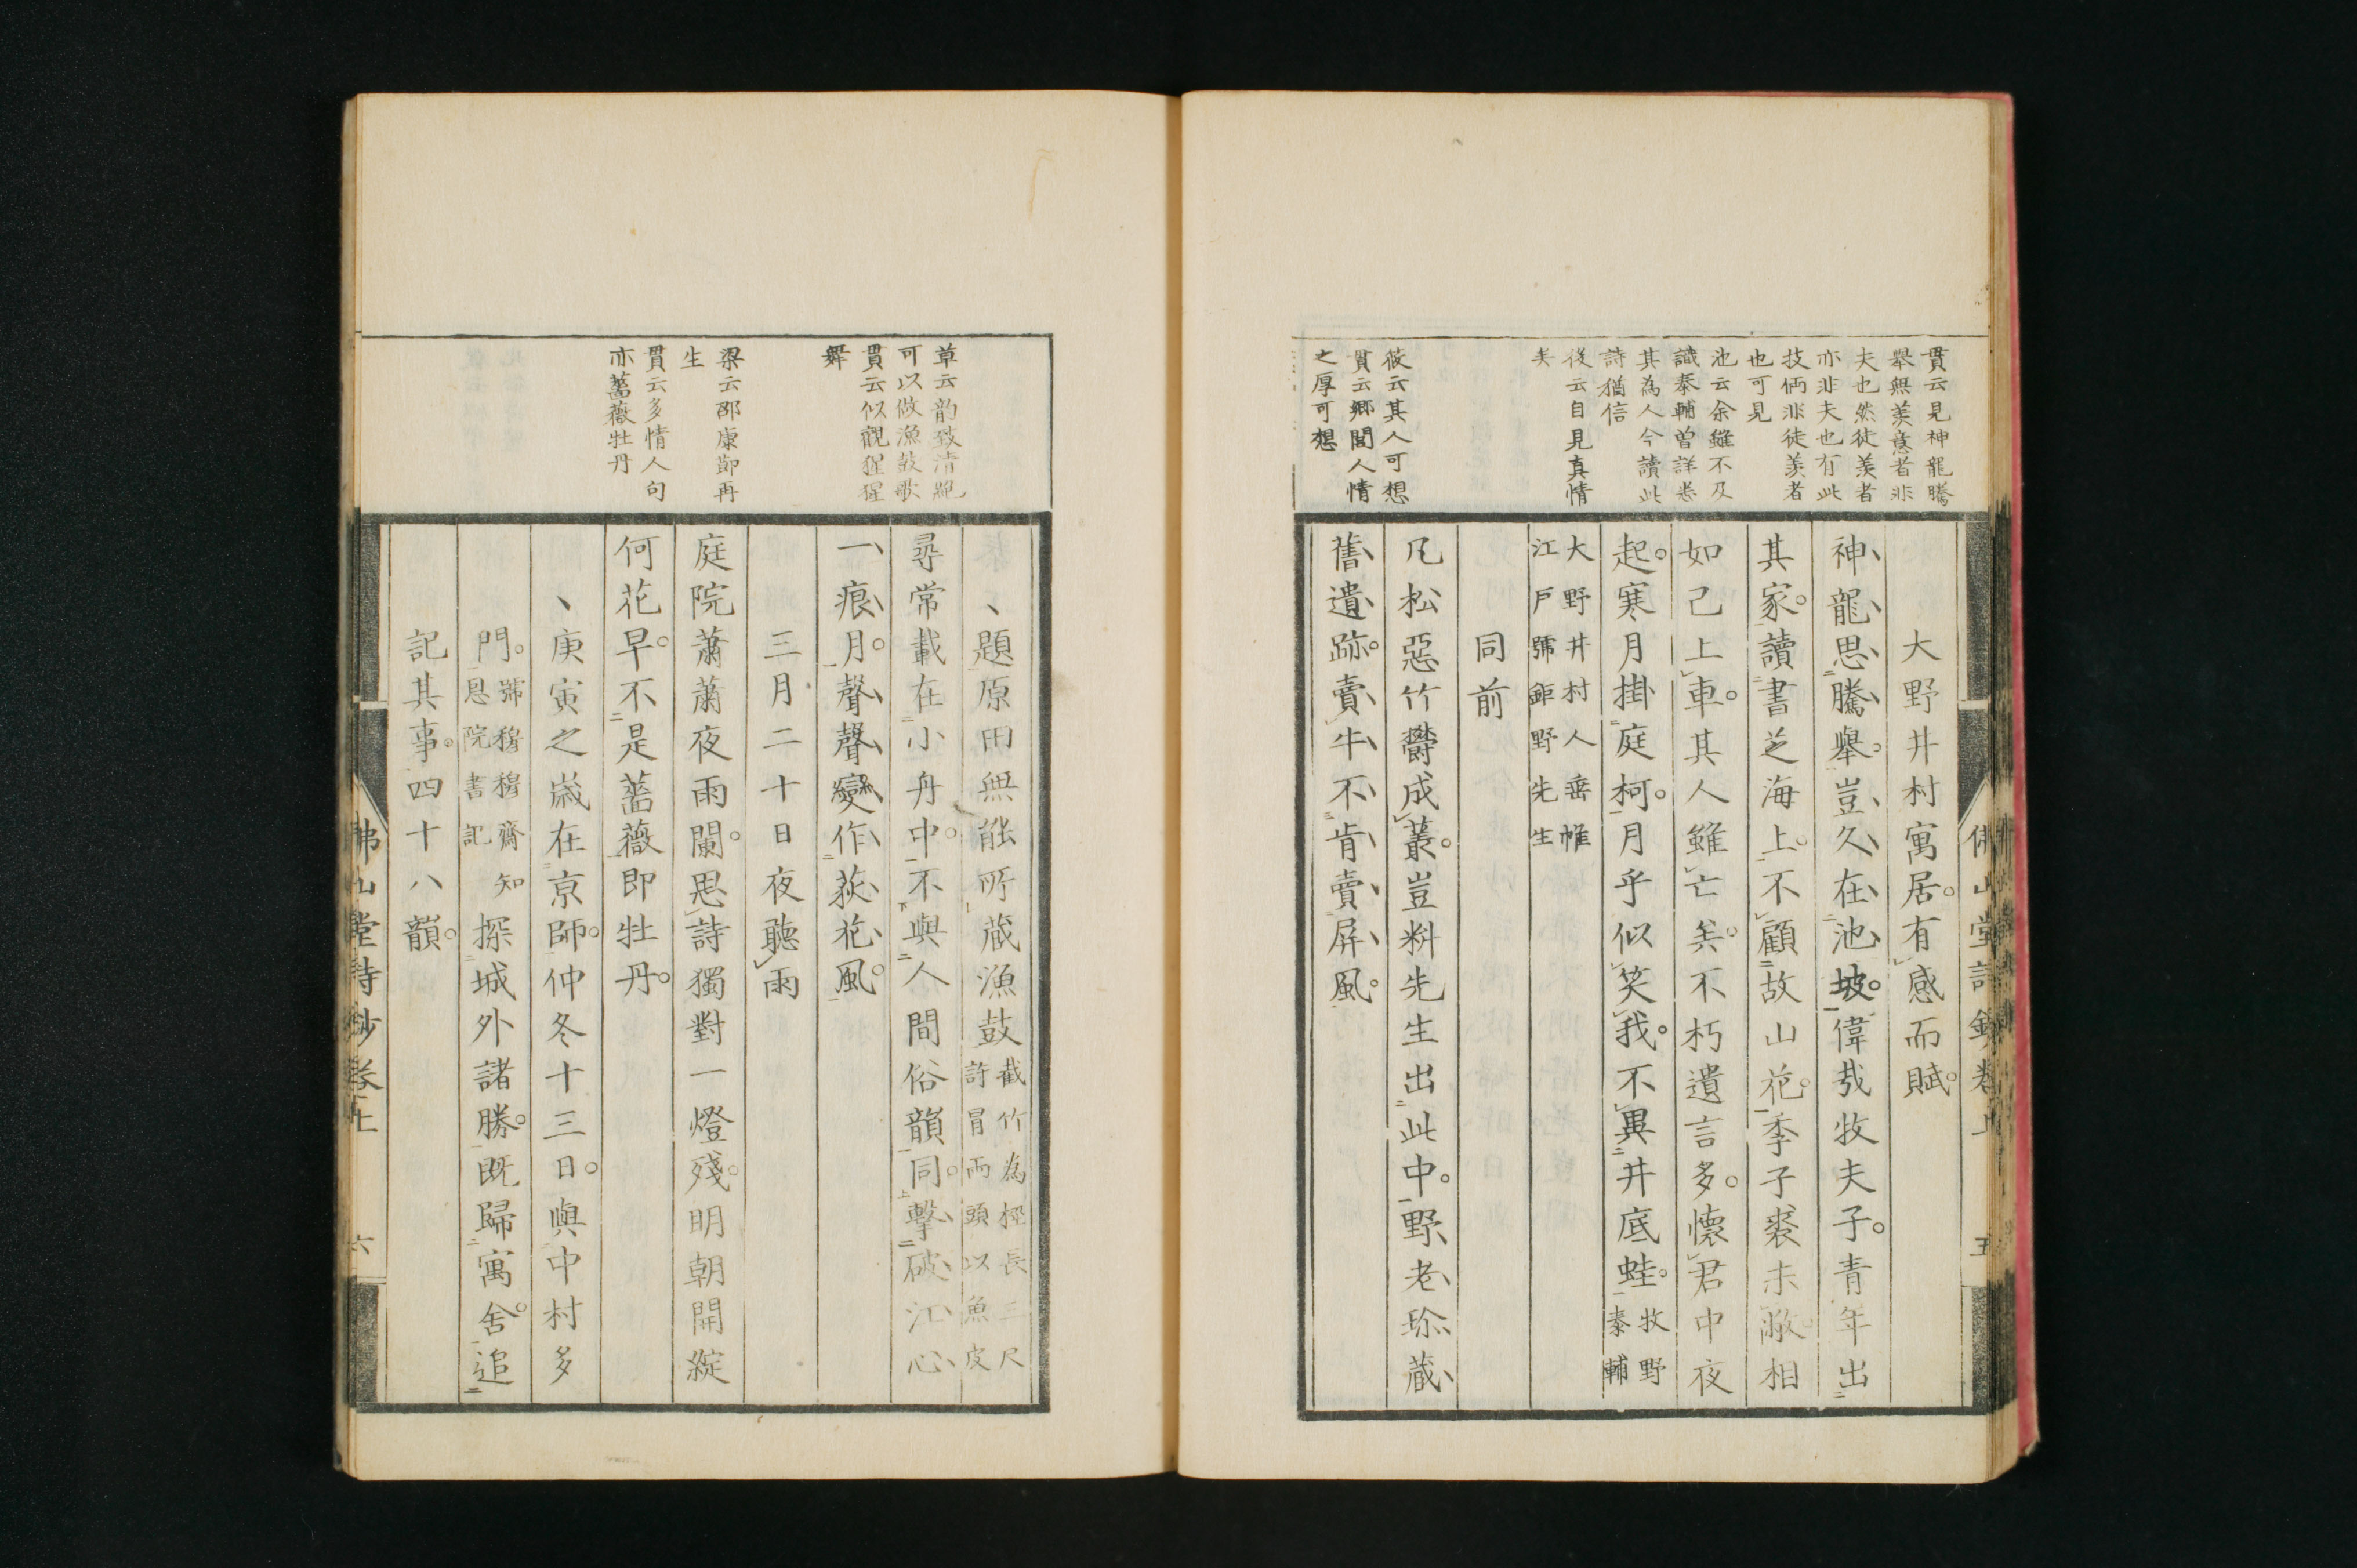 貫云見神龍騰
舉無羨意者非
夫也然徒羨者
亦非夫也有此
技倆非徒羨者
也可見
池云余雖不及
識泰輔曽詳悉
其為人今讀此
詩猶信
後云自見真情
矣
筱云其人可想
貫云郷閭人情
之厚可想
佛山堂詩鈔卷上 五
大野井村寓居有感而賦
神龍思騰舉豈久在池坡偉哉牧夫子青年出
其家讀書芝海上不顧故山花季子裘未敝相
如己上車其人雖亡矣不朽遺言多懷君中夜
起寒月掛庭柯月乎似笑我不異井底蛙牧野
泰輔
大野井村人垂帷
江戸號鉅野先生
同前
凡松惡竹鬱成叢豈料先生出此中野老珎蔵
舊遺跡賣牛不肯賣屏風
草云韵致清絶
可以做漁鼓歌
貫云似觀猩猩
舞
梁云邵康節再
生
貫云多情人句
亦薔薇牡丹
題原田無能所蔵漁鼓截竹為桱長三尺
許冒両頭以魚皮
尋常載在小舟中不與人間俗韻同擊破江心
一痕月聲聲變作荻花風
三月二十日夜聽雨
庭院蕭蕭夜雨闌思詩獨對一燈殘明朝開綻
何花早不是薔薇即牡丹
庚寅之歳在京師仲冬十三日與中村多
門號穆穆齋知
恩院書記探城外諸勝既歸寓舍追
記其事四十八韻
佛山堂詩鈔卷上 六